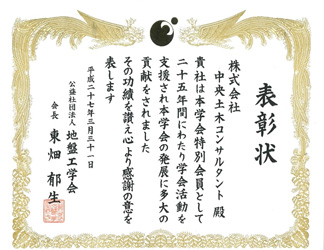 表彰状
株式会社
中央土木コンサルタント 殿
貴社は本学会特別会員として
二十五年間にわたり学会活動を
支援され本学会の発展に多大の
貢献をされました
その功績を讃え心より感謝の意を
表します
平成二十七年三月三十一日
公益社団法人 地盤工学会
会長 東畑 郁生